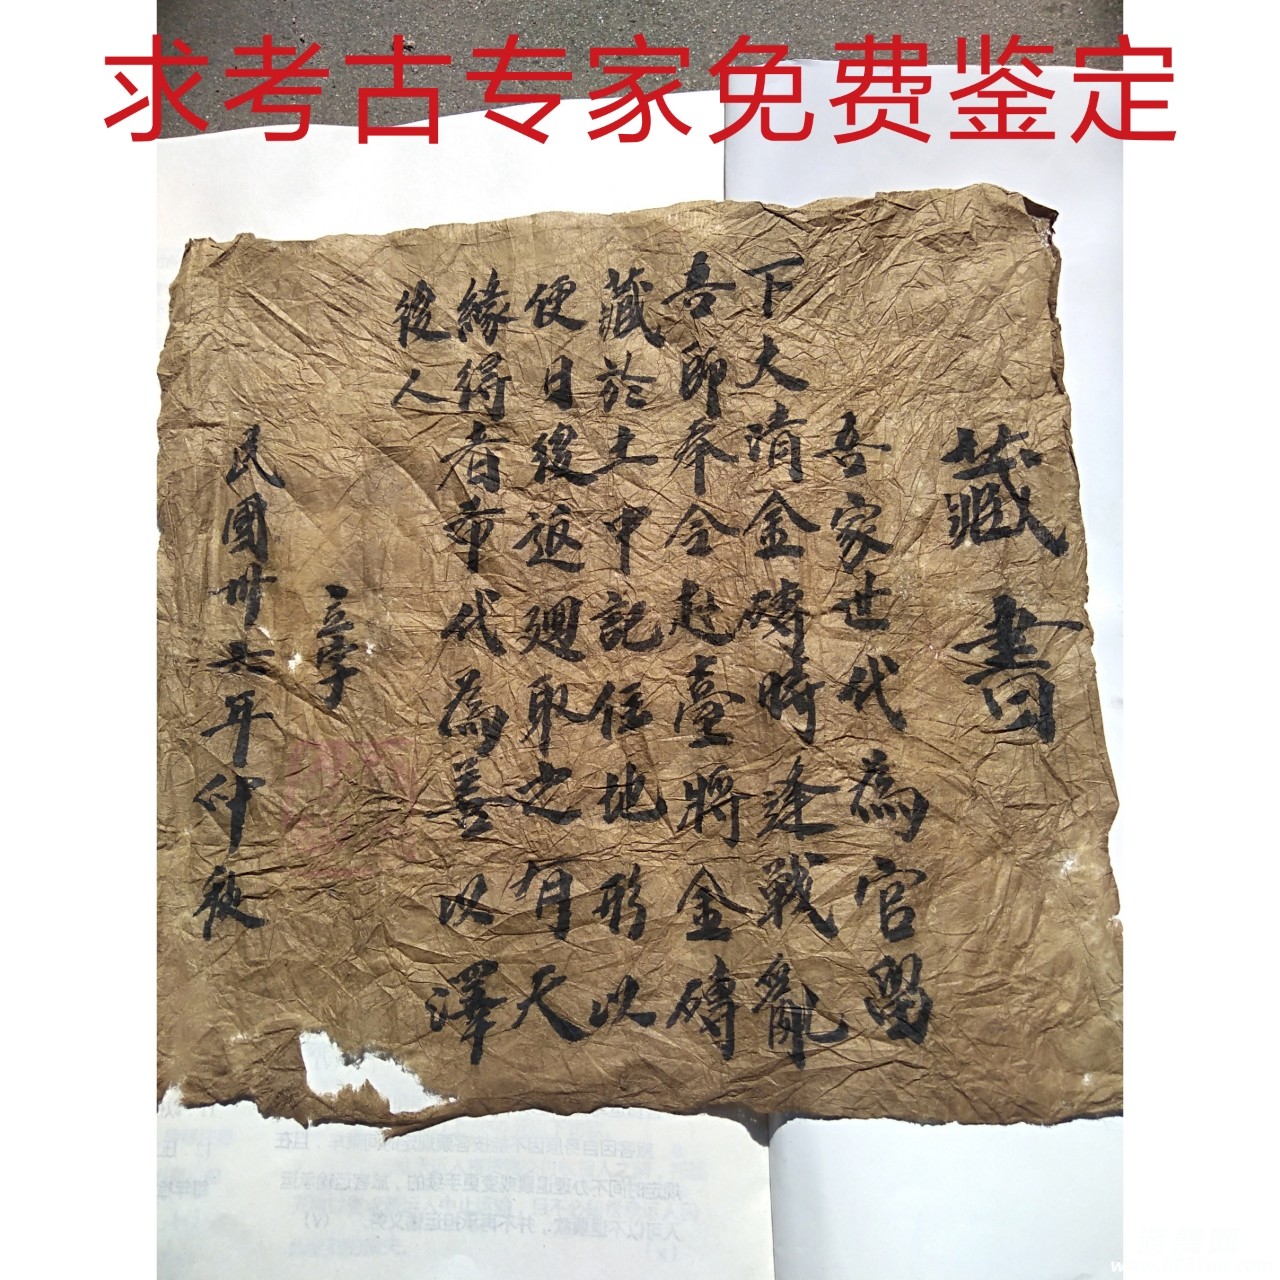 求考古专家免费鉴定
藏書
吾家世代為官留
下大清金磚時逢戰亂
吾師奉令赴臺將金磚
藏於土中記住地形以
便日後返迴取之有天
緣得者布代為善以澤
後人
立字
民國卅七年仲秋